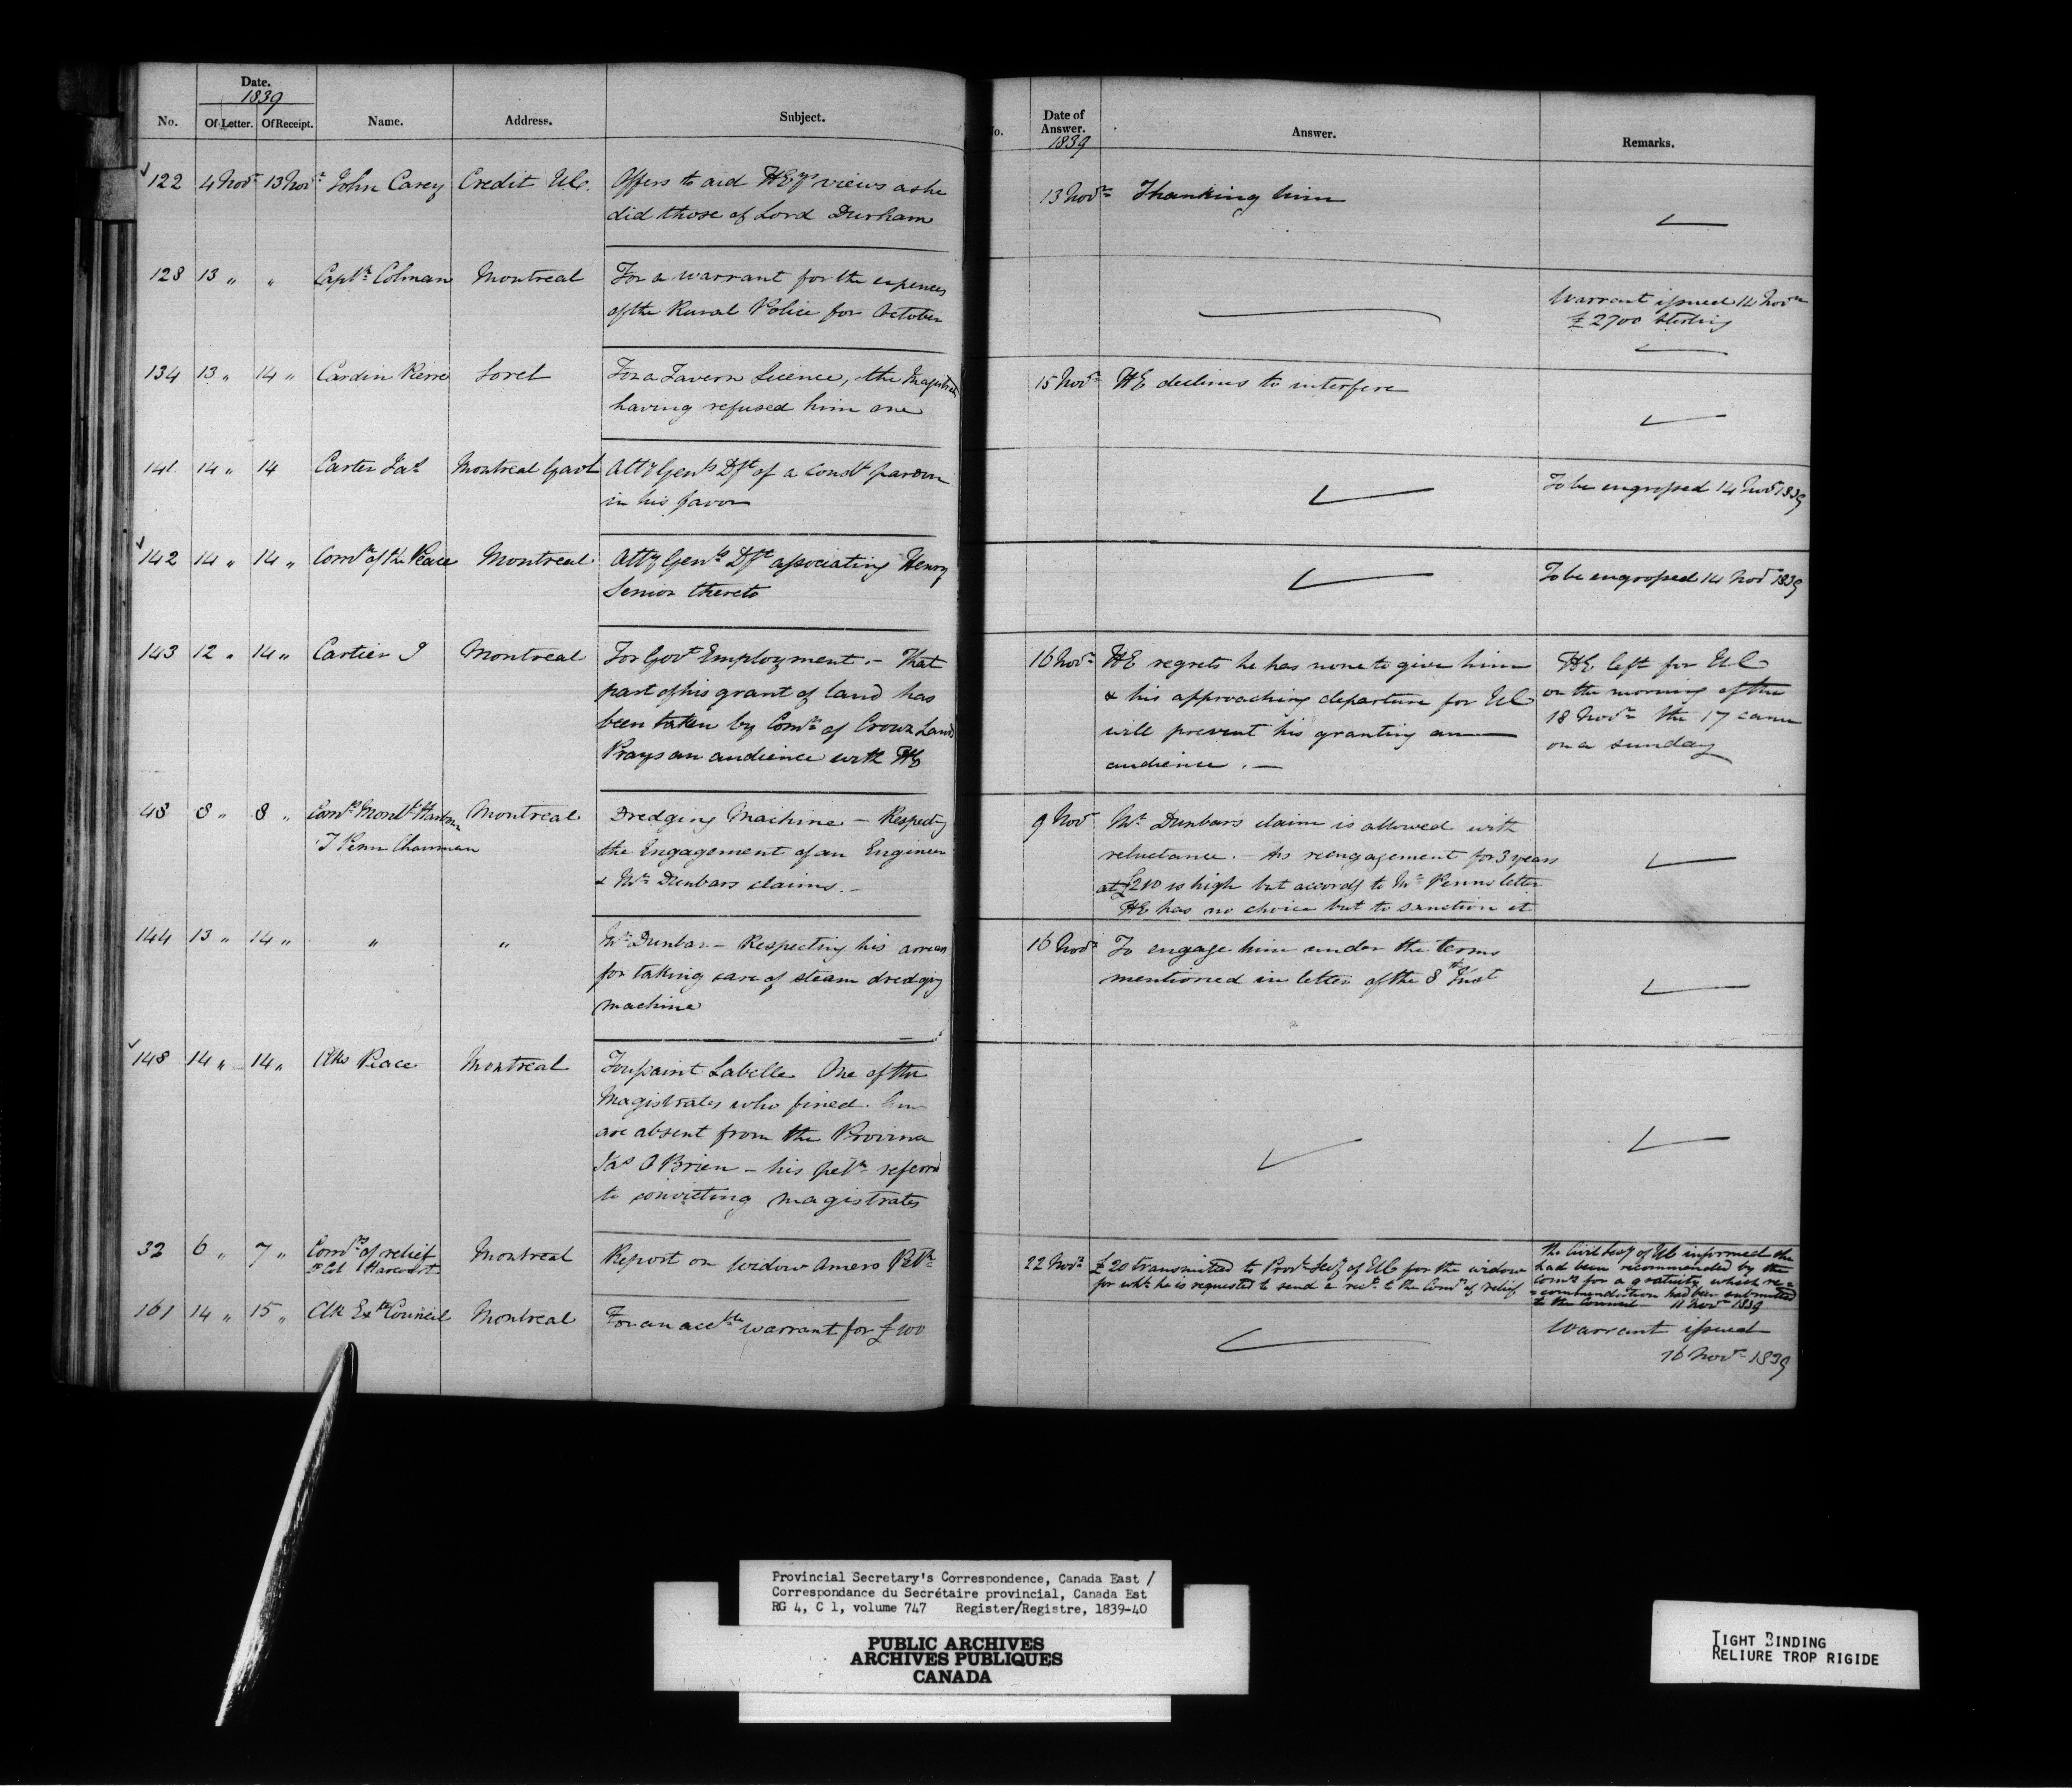 Date.
1839
No.
Of Letter.
Of Receipt.
Name.
Address.
Subject.
122 4 Novr 13 Novr John Carey Credit UC. Offers to aid HEys views as he
did those of Lord Durham
128 13 " " Captn Colman Montreal For a warrant for the expences
of the Rural Police for October
134 13 " 14 " Cardin Pierre Sorel For a Tavern Licence, the Magistrates
having refused him one
141 14 " 14 Carter Jas Montreal Gaol Atty Genls Dft of a Condl pardon
in his favor
142 14 " 14 " Comn of the Peace Montreal Atty Genls Dft associating Henry
Senior thereto
143 12 " 14 " Cartier J Montreal For Govt Employment. – That
part of his grant of land has
been taken by Comr of Crown Land
Prays an audience with HE
48 8 " 8 " Comrs Montl Harbour Montreal Dredging Machine – Respecting
T Penn Chairman the Engagement of an Engineer
& Mr Dunbars claims. –
144 13 " 14 " " " Mr Dunbar – Respecting his arrears
for taking care of steam dredging
machine
148 14 " 14 " Clks Peace Montreal Toussaint Labelle One of the
Magistrates who fined him
are absent from the Province
Jas O Brien – his petn referred
to convicting magistrates
32 6 " 7 " Comrs of relief Montreal Report on Widow Amero Petn
Harcourt
161 14 " 15 " Clk Exve Council Montreal For an accble warrant for £100
o.
Date of
Answer.
1839
Answer.
Remarks.
13 Novr Thanking him
Warrant issued 14 Novr
£2700 Sterling
15 Novr HE declines to interfere
To be engrossed 14 Novr 1839
To be engrossed 14 Novr 1839
16 Novr HE regrets he has none to give him HE left for UC
& his approaching departure for UC on the morning of the
will prevent his granting an 18 Novr the 17 came
audience. – on a sunday
9 Novr Mr Dunbars claim is allowed with
reluctance. – His reengagement for 3 years
at £210 is high but accordg to Mr Penns letter
HE has no choice but to sanction it
16 Novr To engage him under the terms
mentioned in letter of the 8th Inst
22 Novr £20 transmitted to Provl Secy of UC for the widow
for which he is requested to send a rect to the Comrs of relief
The Civil Secy of UC informed she
had been recommended by the
Comrs for a gratuity which re=
=commendation had been submitted
to the Council 11 Novr 1839
Warrant issued
16 Novr 1839
Provincial Secretary's Correspondence, Canada East /
Correspondance du Secrétaire provincial, Canada Est
RG 4, C 1, volume 747 Register/Registre, 1839-40
PUBLIC ARCHIVES
ARCHIVES PUBLIQUES
CANADA
TIGHT BINDING
RELIURE TROP RIGIDE